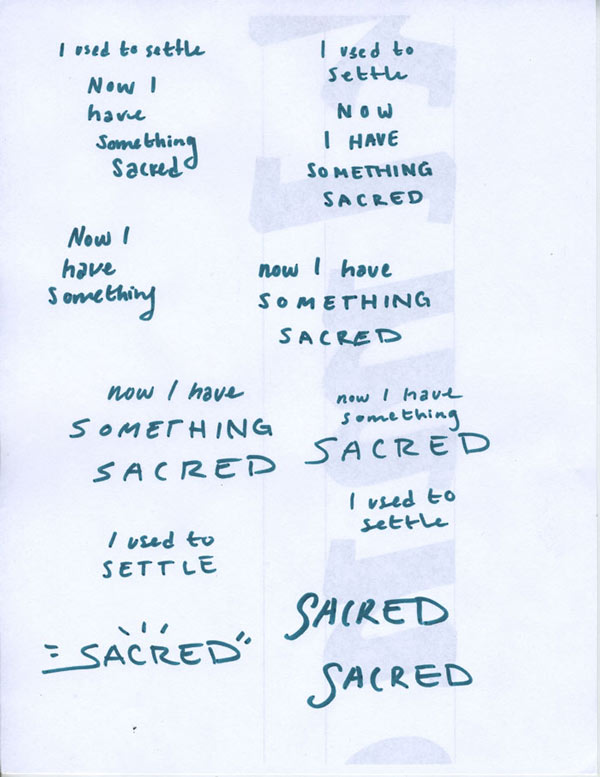 I used to settle
Now I
have
something
Sacred
I used to
settle
NOW
I HAVE
SOMETHING
SACRED
Now I
have
something
now I have
SOMETHING
SACRED
now I have
SOMETHING
SACRED
now I have
something
SACRED
I used to
settle
I used to
SETTLE
SACRED
SACRED
SACRED